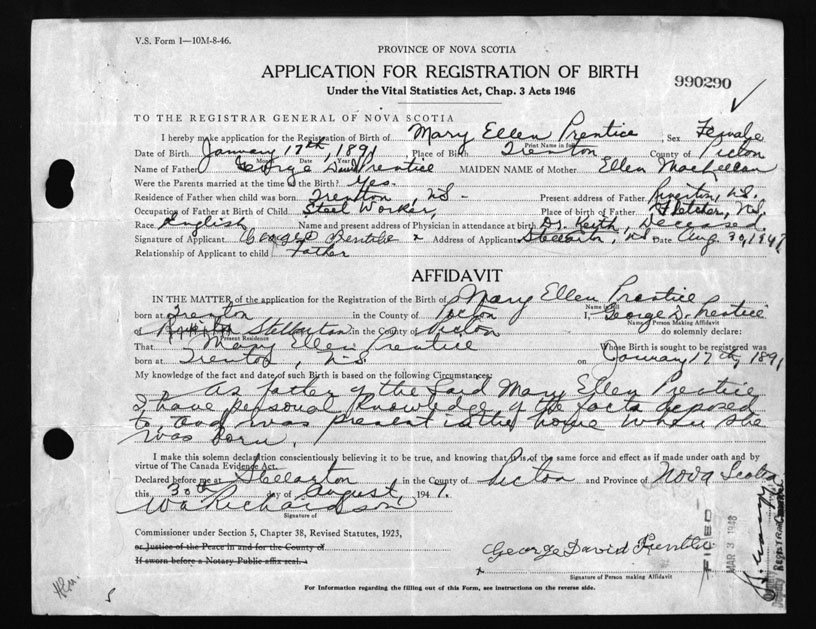 V.S. Form 1—10M-8-46.
PROVINCE OF NOVA SCOTIA
APPLICATION FOR REGISTRATION OF BIRTH
990290
Under the Vital Statistics Act, Chap. 3 Acts 1946
TO THE REGISTRAR GENERAL OF NOVA SCOTIA
I hereby make application for the Registration of Birth of Mary Ellen Prentice Sex Female
Print Name in full
Date of Birth January 17th, 1891 Place of Birth Trenton County of Pictou
Month Date Year
Name of Father George David Prentice MAIDEN NAME of Mother Ellen MacLellan
Were the Parents married at the time of the Birth? Yes.
Residence of Father when child was born Trenton, NS - Present address of Father N.S.
Occupation of Father at Birth of Child Steel Worker, Place of birth of Father N.S.
Race English Name and present address of Physician in attendance at birth Dr. Keith, Deceased.
Signature of Applicant George Prentice x Address of Applicant Stellarton, NS Date Aug. 30, 1947
Relationship of Applicant to child Father
AFFIDAVIT
IN THE MATTER of the application for the Registration of the Birth of Mary Ellen Prentice
Name in full
born at Trenton in the County of Pictou I, George D. Prentice
Name of Person Making Affidavit
of Stellarton in the County of Pictou do solemnly declare:
Present Residence
That Mary Ellen Prentice Whose Birth is sought to be registered was
born at Trenton, N.S. on January 17th, 1891
My knowledge of the fact and date of such Birth is based on the following Circumstances:
As father of the said Mary Ellen Prentice
I have personal knowledge of the facts deposed
to, and was present in the home when she
was born.
I make this solemn declaration conscientiously believing it to be true, and knowing that it is of the same force and effect as if made under oath and by
virtue of The Canada Evidence Act.
Declared before me at Stellarton in the County of Pictou and Province of Nova Scotia
this 30th day of August, 1947.
W A Richardson
Signature of
Commissioner under Section 5, Chapter 38, Revised Statutes, 1923,
or Justice of the Peace in and for the County of
If sworn before a Notary Public affix seal.
George David Prentice
x
Signature of Person making Affidavit
FILED
MAR 3 1948
DEPUTY REGISTRAR GENERAL
For Information regarding the filling out of this Form, see instructions on the reverse side.